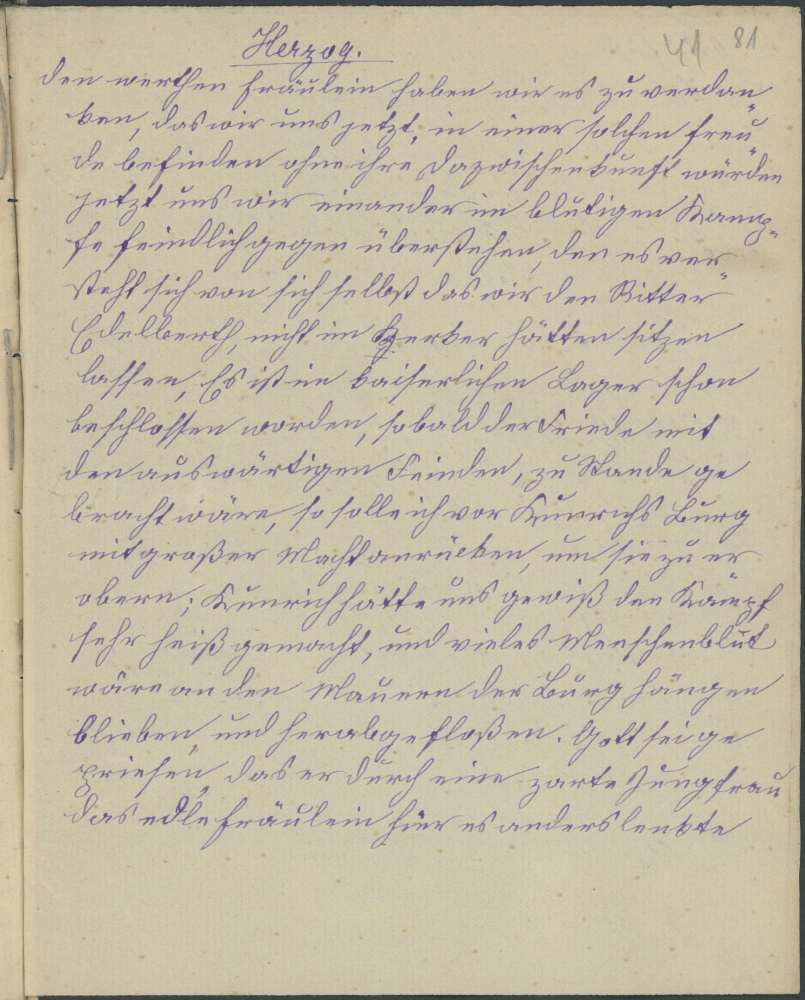 Herzog.
41 81
den werthen Fräulein haben wir es zu verdan
ken, das wir uns jetzt, in einer solchen Freu
de befinden ohne ihre Dazwischenkunft würden
jetzt uns wir einander im blutigen Kamp=
fe feindlich gegen überstehen, den es ver
steht sich von sich selbst das wir den Ritter
Edelberth, nicht im Kerker hätten sitzen
lassen, Es ist im kaiserlichen Lager schon
beschlossen worden, sobald der Friede mit
den auswärtigen Feinden, zu Stande ge
bracht wäre, so solle ich vor Kunrichs Burg
mit großer Macht anrücken, um sie zu er
obern; Kunrich hätte uns gewiß den Kampf
sehr heiß gemacht, und vieles Menschenblut
wäre an den Mauern der Burg hängen
blieben, und herabgefloßen. Gott sei ge
priesen, das er durch eine zarte Jungfrau
das edle Fräulein hier es anders lenkte